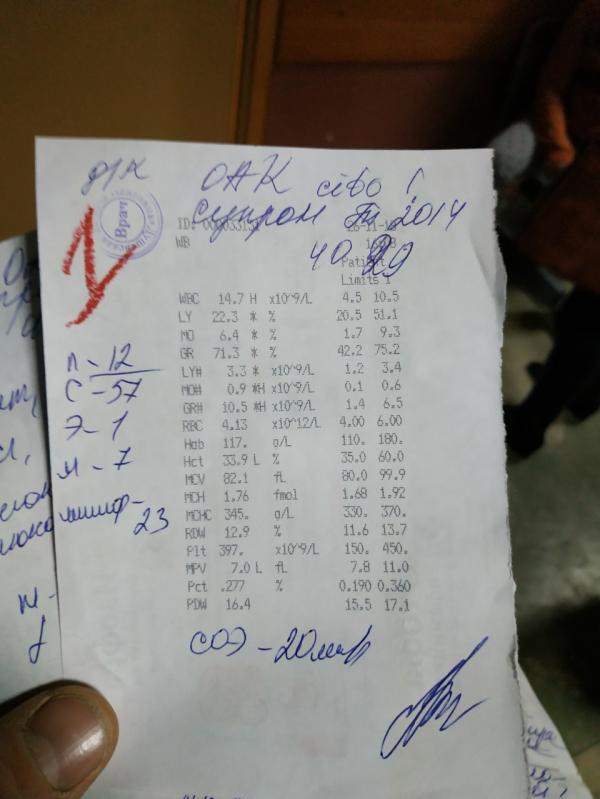 ОАК cito!
2014
Врач
ID:
WB
Limits 1
WBC 14.7 H x10^9/L 4.5 10.5
LY 22.3 * % 20.5 51.1
MO 6.4 * % 1.7 9.3
GR 71.3 * % 42.2 75.2
LY# 3.3 * x10^9/L 1.2 3.4
MO# 0.9 *H x10^9/L 0.1 0.6
GR# 10.5 *H x10^9/L 1.4 6.5
RBC 4.13 x10^12/L 4.00 6.00
Hgb 117. g/L 110. 180.
Hct 33.9 L % 35.0 60.0
MCV 82.1 fL 80.0 99.9
MCH 1.76 fmol 1.68 1.92
MCHC 345. g/L 330. 370.
RDW 12.9 % 11.6 13.7
Plt 397. x10^9/L 150. 450.
MPV 7.0 L fL 7.8 11.0
Pct .277 % 0.190 0.360
PDW 16.4 15.5 17.1
П - 12
С - 57
Э - 1
М - 7
лимф -
23
СОЭ - 20 мм/ч